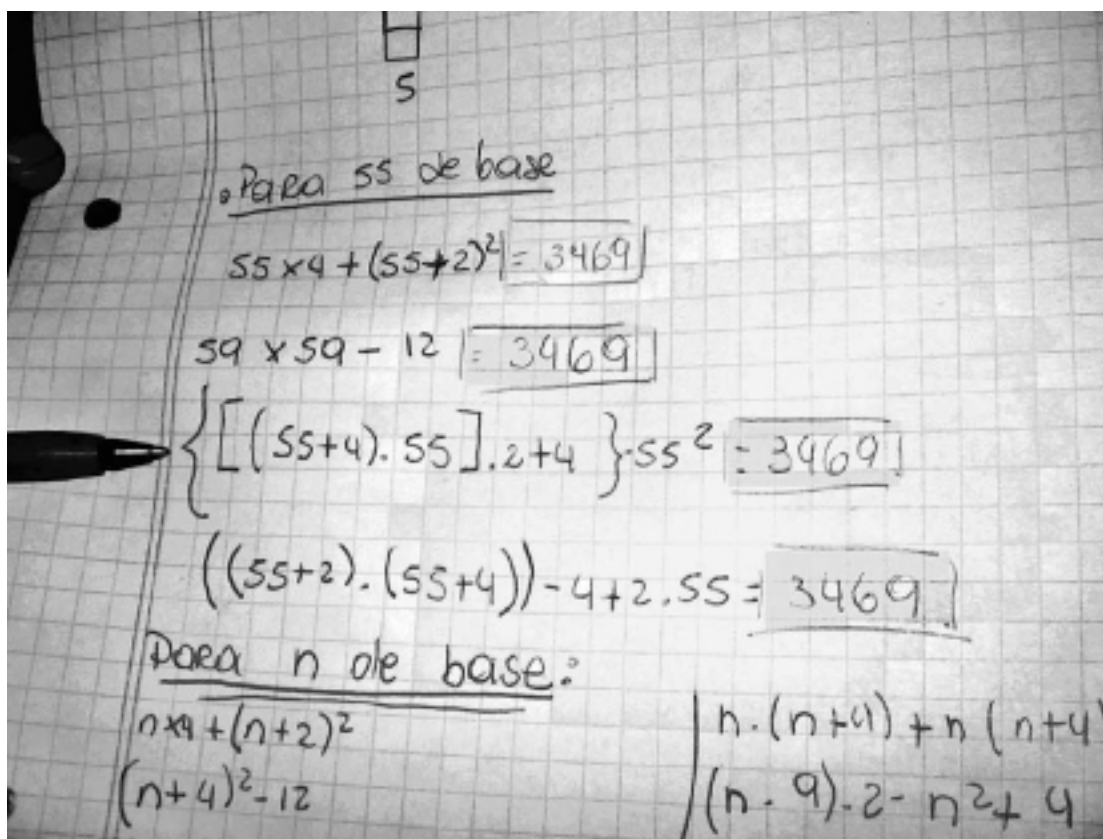 5
Para 55 de base
55 x 4 + (55+2)² = 3469
59 x 59 - 12 = 3469
{[(55+4).55].2+4}-55² = 3469
((55+2).(55+4))-4+2.55 = 3469
Para n de base:
n x 4 + (n+2)²
(n+4)² - 12
n.(n+4) + n(n+4)
(n.9).2 - n² + 4